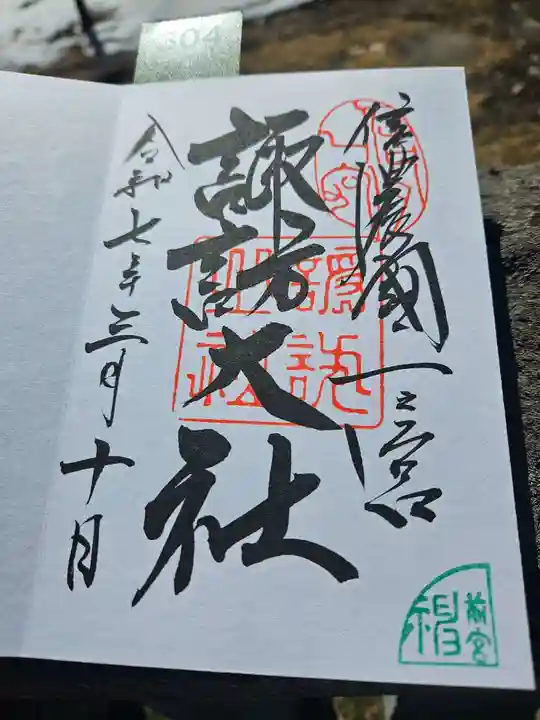 信濃國一之宮
諏訪大社
令和七年三月十日
諏訪大社
前宮
304